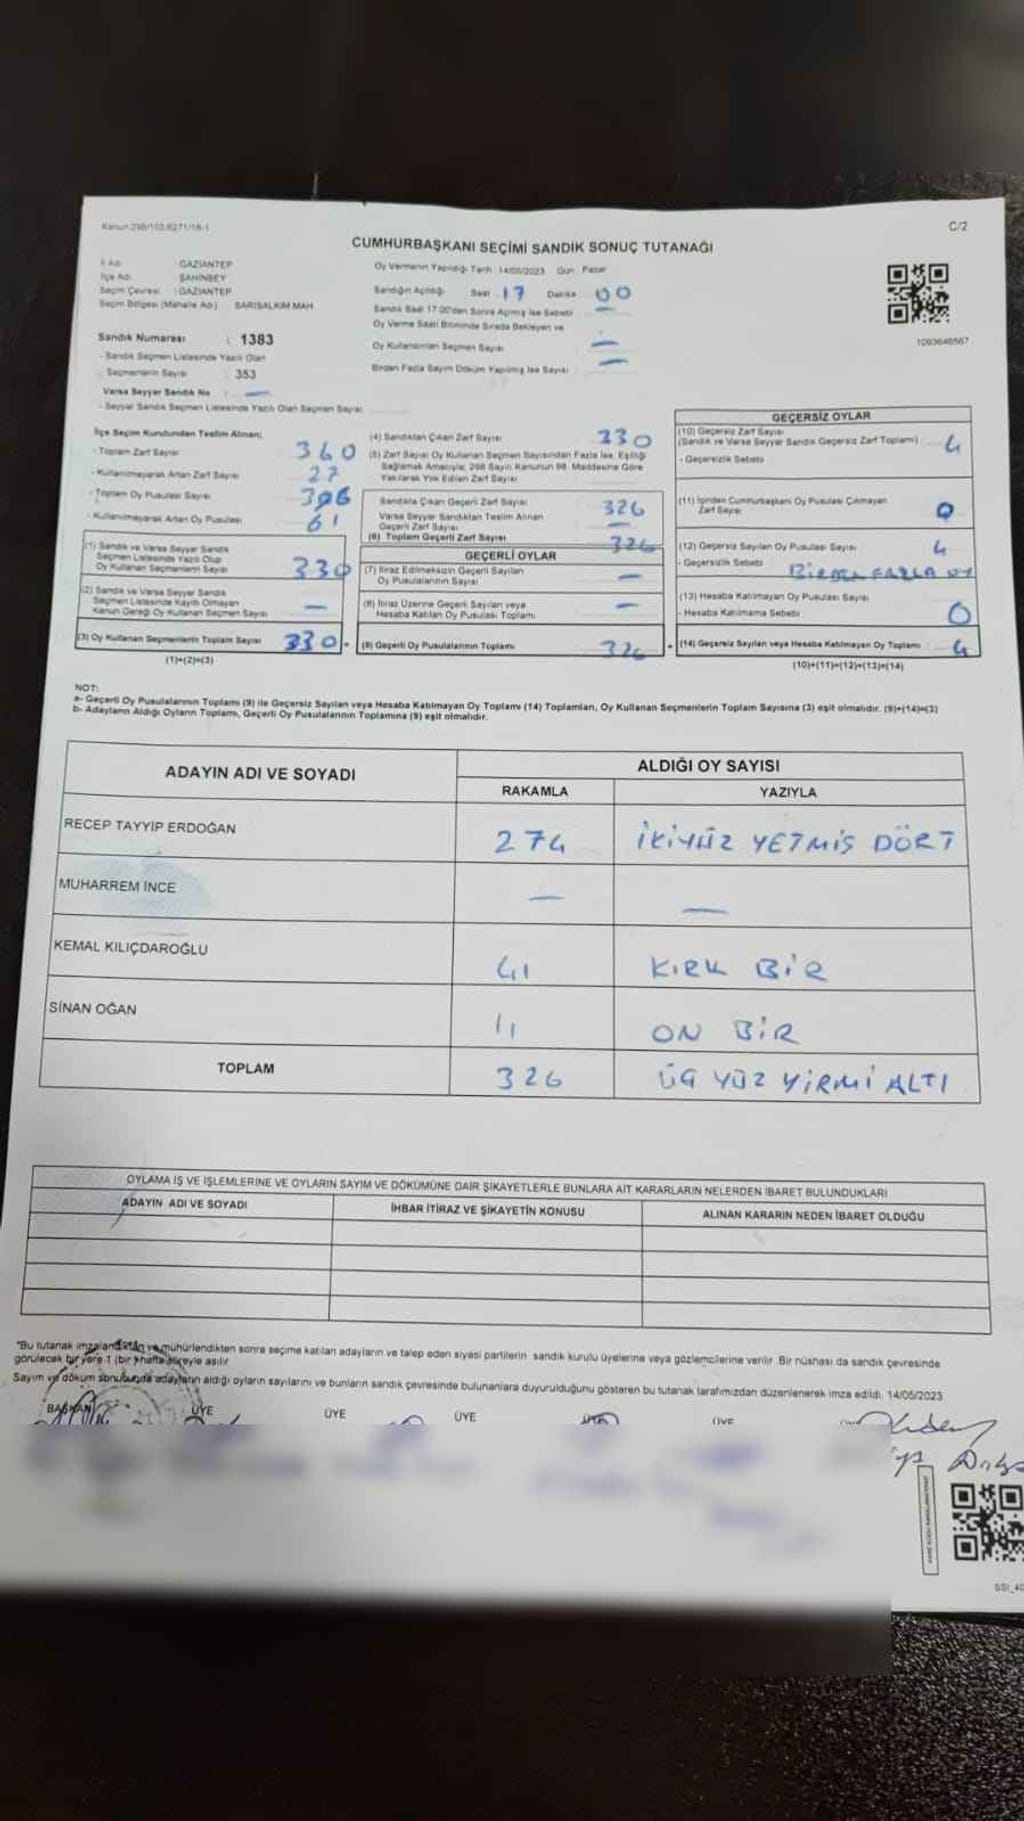 Kanun 298/103.6271/18-1
C/2
CUMHURBAŞKANI SEÇİMİ SANDIK SONUÇ TUTANAĞI
İl Adı : GAZİANTEP
İlçe Adı : ŞAHİNBEY
Seçim Çevresi : GAZİANTEP
Seçim Bölgesi (Mahalle Adı) : SARISALKIM MAH
Sandık Numarası : 1383
- Sandık Seçmen Listesinde Yazılı Olan
Seçmenlerin Sayısı : 353
Varsa Seyyar Sandık No : —
- Seyyar Sandık Seçmen Listesinde Yazılı Olan Seçmen Sayısı
Oy Vermenin Yapıldığı Tarih : 14/05/2023 Gün : Pazar
Sandığın Açıldığı Saat 17 Dakika 00
Sandık Saat 17.00'den Sonra Açılmış İse Sebebi —
Oy Verme Saati Bitiminde Sırada Bekleyen ve
Oy Kullandırılan Seçmen Sayısı —
Birden Fazla Sayım Döküm Yapılmış İse Sayısı —
İlçe Seçim Kurulundan Teslim Alınan;
- Toplam Zarf Sayısı 360
- Kullanılmayarak Artan Zarf Sayısı 27
- Toplam Oy Pusulası Sayısı 396
- Kullanılmayarak Artan Oy Pusulası 61
(1) Sandık ve Varsa Seyyar Sandık
Seçmen Listesinde Yazılı Olup
Oy Kullanan Seçmenlerin Sayısı 330
(2) Sandık ve Varsa Seyyar Sandık
Seçmen Listesinde Kayıtlı Olmayan
Kanun Gereği Oy Kullanan Seçmen Sayısı —
(3) Oy Kullanan Seçmenlerin Toplam Sayısı 330
(1)+(2)=(3)
(4) Sandıktan Çıkan Zarf Sayısı 330
(5) Zarf Sayısı Oy Kullanan Seçmen Sayısından Fazla İse, Eşitliği
Sağlamak Amacıyla, 298 Sayılı Kanunun 98. Maddesine Göre
Yakılarak Yok Edilen Zarf Sayısı
Sandıkta Çıkan Geçerli Zarf Sayısı 326
Varsa Seyyar Sandıktan Teslim Alınan
Geçerli Zarf Sayısı —
(6) Toplam Geçerli Zarf Sayısı 326
GEÇERLİ OYLAR
(7) İtiraz Edilmeksizin Geçerli Sayılan
Oy Pusulalarının Sayısı —
(8) İtiraz Üzerine Geçerli Sayılan veya
Hesaba Katılan Oy Pusulası Toplamı —
(9) Geçerli Oy Pusulalarının Toplamı 326
1093646567
GEÇERSİZ OYLAR
(10) Geçersiz Zarf Sayısı
(Sandık ve Varsa Seyyar Sandık Geçersiz Zarf Toplamı) 4
- Geçersizlik Sebebi
(11) İçinden Cumhurbaşkanı Oy Pusulası Çıkmayan
Zarf Sayısı 0
(12) Geçersiz Sayılan Oy Pusulası Sayısı 4
- Geçersizlik Sebebi BİRDEN FAZLA OY
(13) Hesaba Katılmayan Oy Pusulası Sayısı
- Hesaba Katılmama Sebebi 0
(14) Geçersiz Sayılan veya Hesaba Katılmayan Oy Toplamı 4
(10)+(11)+(12)+(13)=(14)
NOT:
a- Geçerli Oy Pusulalarının Toplamı (9) ile Geçersiz Sayılan veya Hesaba Katılmayan Oy Toplamı (14) Toplamları, Oy Kullanan Seçmenlerin Toplam Sayısına (3) eşit olmalıdır. (9)+(14)=(3)
b- Adayların Aldığı Oyların Toplamı, Geçerli Oy Pusulalarının Toplamına (9) eşit olmalıdır.
ADAYIN ADI VE SOYADI
ALDIĞI OY SAYISI
RAKAMLA YAZIYLA
RECEP TAYYİP ERDOĞAN 274 İKİYÜZ YETMİŞ DÖRT
MUHARREM İNCE — —
KEMAL KILIÇDAROĞLU 41 KIRK BİR
SİNAN OĞAN 11 ON BİR
TOPLAM 326 ÜÇ YÜZ YİRMİ ALTI
OYLAMA İŞ VE İŞLEMLERİNE VE OYLARIN SAYIM VE DÖKÜMÜNE DAİR ŞİKAYETLERLE BUNLARA AİT KARARLARIN NELERDEN İBARET BULUNDUKLARI
ADAYIN ADI VE SOYADI İHBAR İTİRAZ VE ŞİKAYETİN KONUSU ALINAN KARARIN NEDEN İBARET OLDUĞU
"Bu tutanak imzalandıktan ve mühürlendikten sonra seçime katılan adayların ve talep eden siyasi partilerin sandık kurulu üyelerine veya gözlemcilerine verilir. Bir nüshası da sandık çevresinde
görülecek bir yere 1 (bir) hafta süreyle asılır
Sayım ve döküm sonucunda adayların aldığı oyların sayılarını ve bunların sandık çevresinde bulunanlara duyurulduğunu gösteren bu tutanak tarafımızdan düzenlenerek imza edildi. 14/05/2023
BAŞKAN ÜYE ÜYE ÜYE ÜYE ÜYE